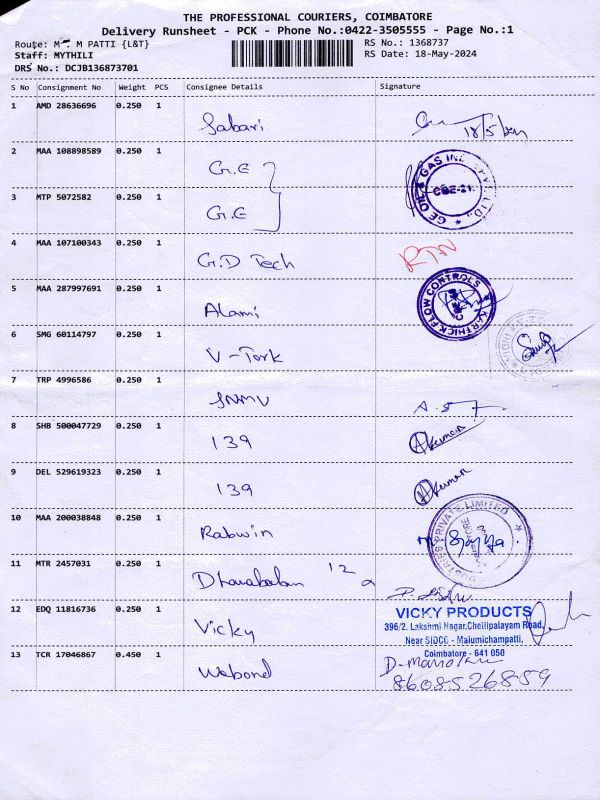 THE PROFESSIONAL COURIERS, COIMBATORE
Delivery Runsheet - PCK - Phone No.:0422-3505555 - Page No.:1
Route: M M PATTI {L&T}
RS No.: 1368737
Staff: MYTHILI
RS Date: 18-May-2024
DRS No.: DCJB136873701
S No Consignment No Weight PCS Consignee Details Signature
1 AMD 28636696 0.250 1 Sabari 18/5/24
2 MAA 108898589 0.250 1 G.E
GE OIL & GAS IN PVT. LTD.
3 MTP 5072582 0.250 1 G.E
4 MAA 107100343 0.250 1 G.D Tech RTN
5 MAA 287997691 0.250 1 Alami
KARTHICK FLOW CONTROLS
6 SMG 60114797 0.250 1 V-Tork
7 TRP 4996586 0.250 1 JNMV
8 SHB 500047729 0.250 1 139 Akumar
9 DEL 529619323 0.250 1 139 Akumar
10 MAA 200038848 0.250 1 Rabwin
PRIVATE LIMITED
11 MTR 2457031 0.250 1 12
12 EDQ 11816736 0.250 1 Vicky
VICKY PRODUCTS
396/2. Lakshmi Nagar,Chettipalayam Road,
Near SIDCO - Malumichampatti,
Coimbatore - 641 050
13 TCR 17046867 0.450 1 Wabond
8608526859